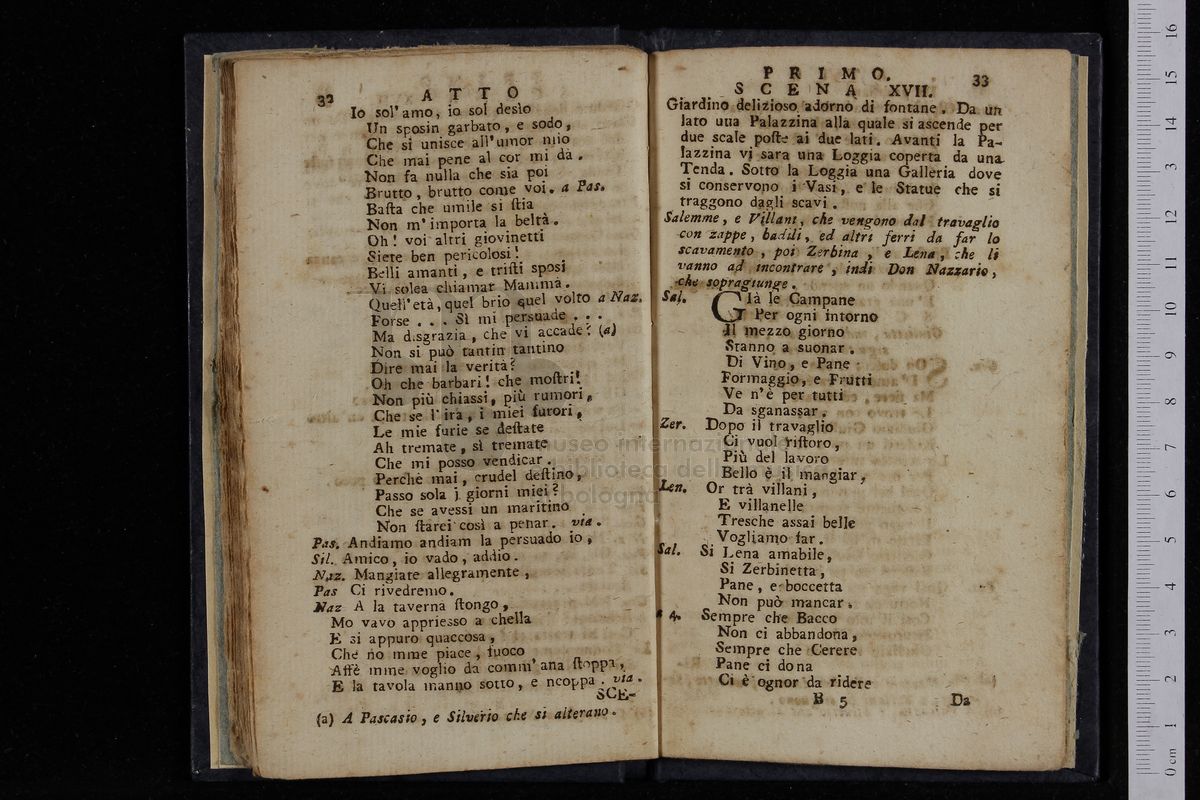 32
ATTO
Io sol' amo, io sol desìo
Un sposin garbato, e sodo,
Che si unisce all'umor mio
Che mai pene al cor mi dà.
Non fa nulla che sia poi
Brutto, brutto come voi. a Pas.
Baſta che umile si ſtia
Non m'importa la beltà.
Oh! voi altri giovinetti
Siete ben pericolosi!
Belli amanti, e triſti sposi
Vi solea chiamar Mamma.
Quell'età, quel brio quel volto a Naz.
Forse . . . Sì mi persuade . . .
Ma disgrazia, che vi accade? (a)
Non si può tantin tantino
Dire mai la verità?
Oh che barbari! che moſtri!
Non più chiassi, più rumori,
Che se l'ira, i miei furori,
Le mie furie se deſtate
Ah tremate, sì tremate
Che mi posso vendicar.
Perchè mai, crudel deſtino,
Passo sola j giorni miei?
Che se avessi un maritino
Non ſtarei così a penar. via.
Pas. Andiamo andiam la persuado io,
Sil. Amico, io vado, addio.
Naz. Mangiate allegramente,
Pas Ci rivedremo.
Naz A la taverna ſtongo,
Mo vavo appriesso a chella
E si appuro quaccosa,
Che no mme piace, fuoco
Affè mme voglio da comm' ana ſtoppa,
E la tavola manno sotto, e ncoppa. via.
SCE-
(a) A Pascasio, e Silverio che si alterano.
PRIMO.
33
SCENA XVII.
Giardino delizioso adorno di fontane. Da un
lato una Palazzina alla quale si ascende per
due scale poſte ai due lati. Avanti la Pa-
lazzina vi sara una Loggia coperta da una
Tenda. Sotto la Loggia una Galleria dove
si conservono i Vasi, e le Statue che si
traggono dagli scavi.
Salemme, e Villani, che vengono dal travaglio
con zappe, badili, ed altri ferri da far lo
scavamento, poi Zerbina, e Lena, che li
vanno ad incontrare, indi Don Nazzario,
che sopragiunge.
Sal. Già le Campane
Per ogni intorno
Il mezzo giorno
Stanno a suonar.
Di Vino, e Pane
Formaggio, e Frutti
Ve n'è per tutti
Da sganassar.
Zer. Dopo il travaglio
Ci vuol riſtoro,
Più del lavoro
Bello è il mangiar,
Len. Or trà villani,
E villanelle
Tresche assai belle
Vogliamo far.
Sal. Si Lena amabile,
Si Zerbinetta,
Pane, e boccetta
Non può mancar.
a 4. Sempre che Bacco
Non ci abbandona,
Sempre che Cerere
Pane ci dona
Ci è ognor da ridere
B 5
Da